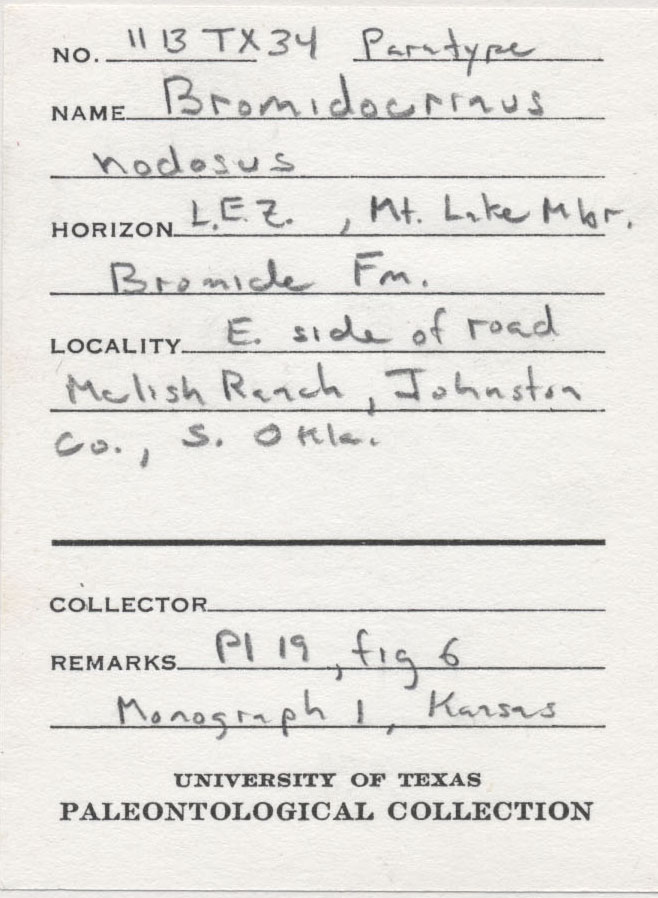 NO. 1113TX34 Paratype
NAME Bromidocrinus
nodosus
HORIZON L.E.Z. , Mt. Lake Mbr.
Bromide Fm.
LOCALITY E. side of road
Mclish Ranch, Johnston
Co., S. Okla.
COLLECTOR
REMARKS Pl 19, fig 6
Monograph 1, Kansas
UNIVERSITY OF TEXAS
PALEONTOLOGICAL COLLECTION